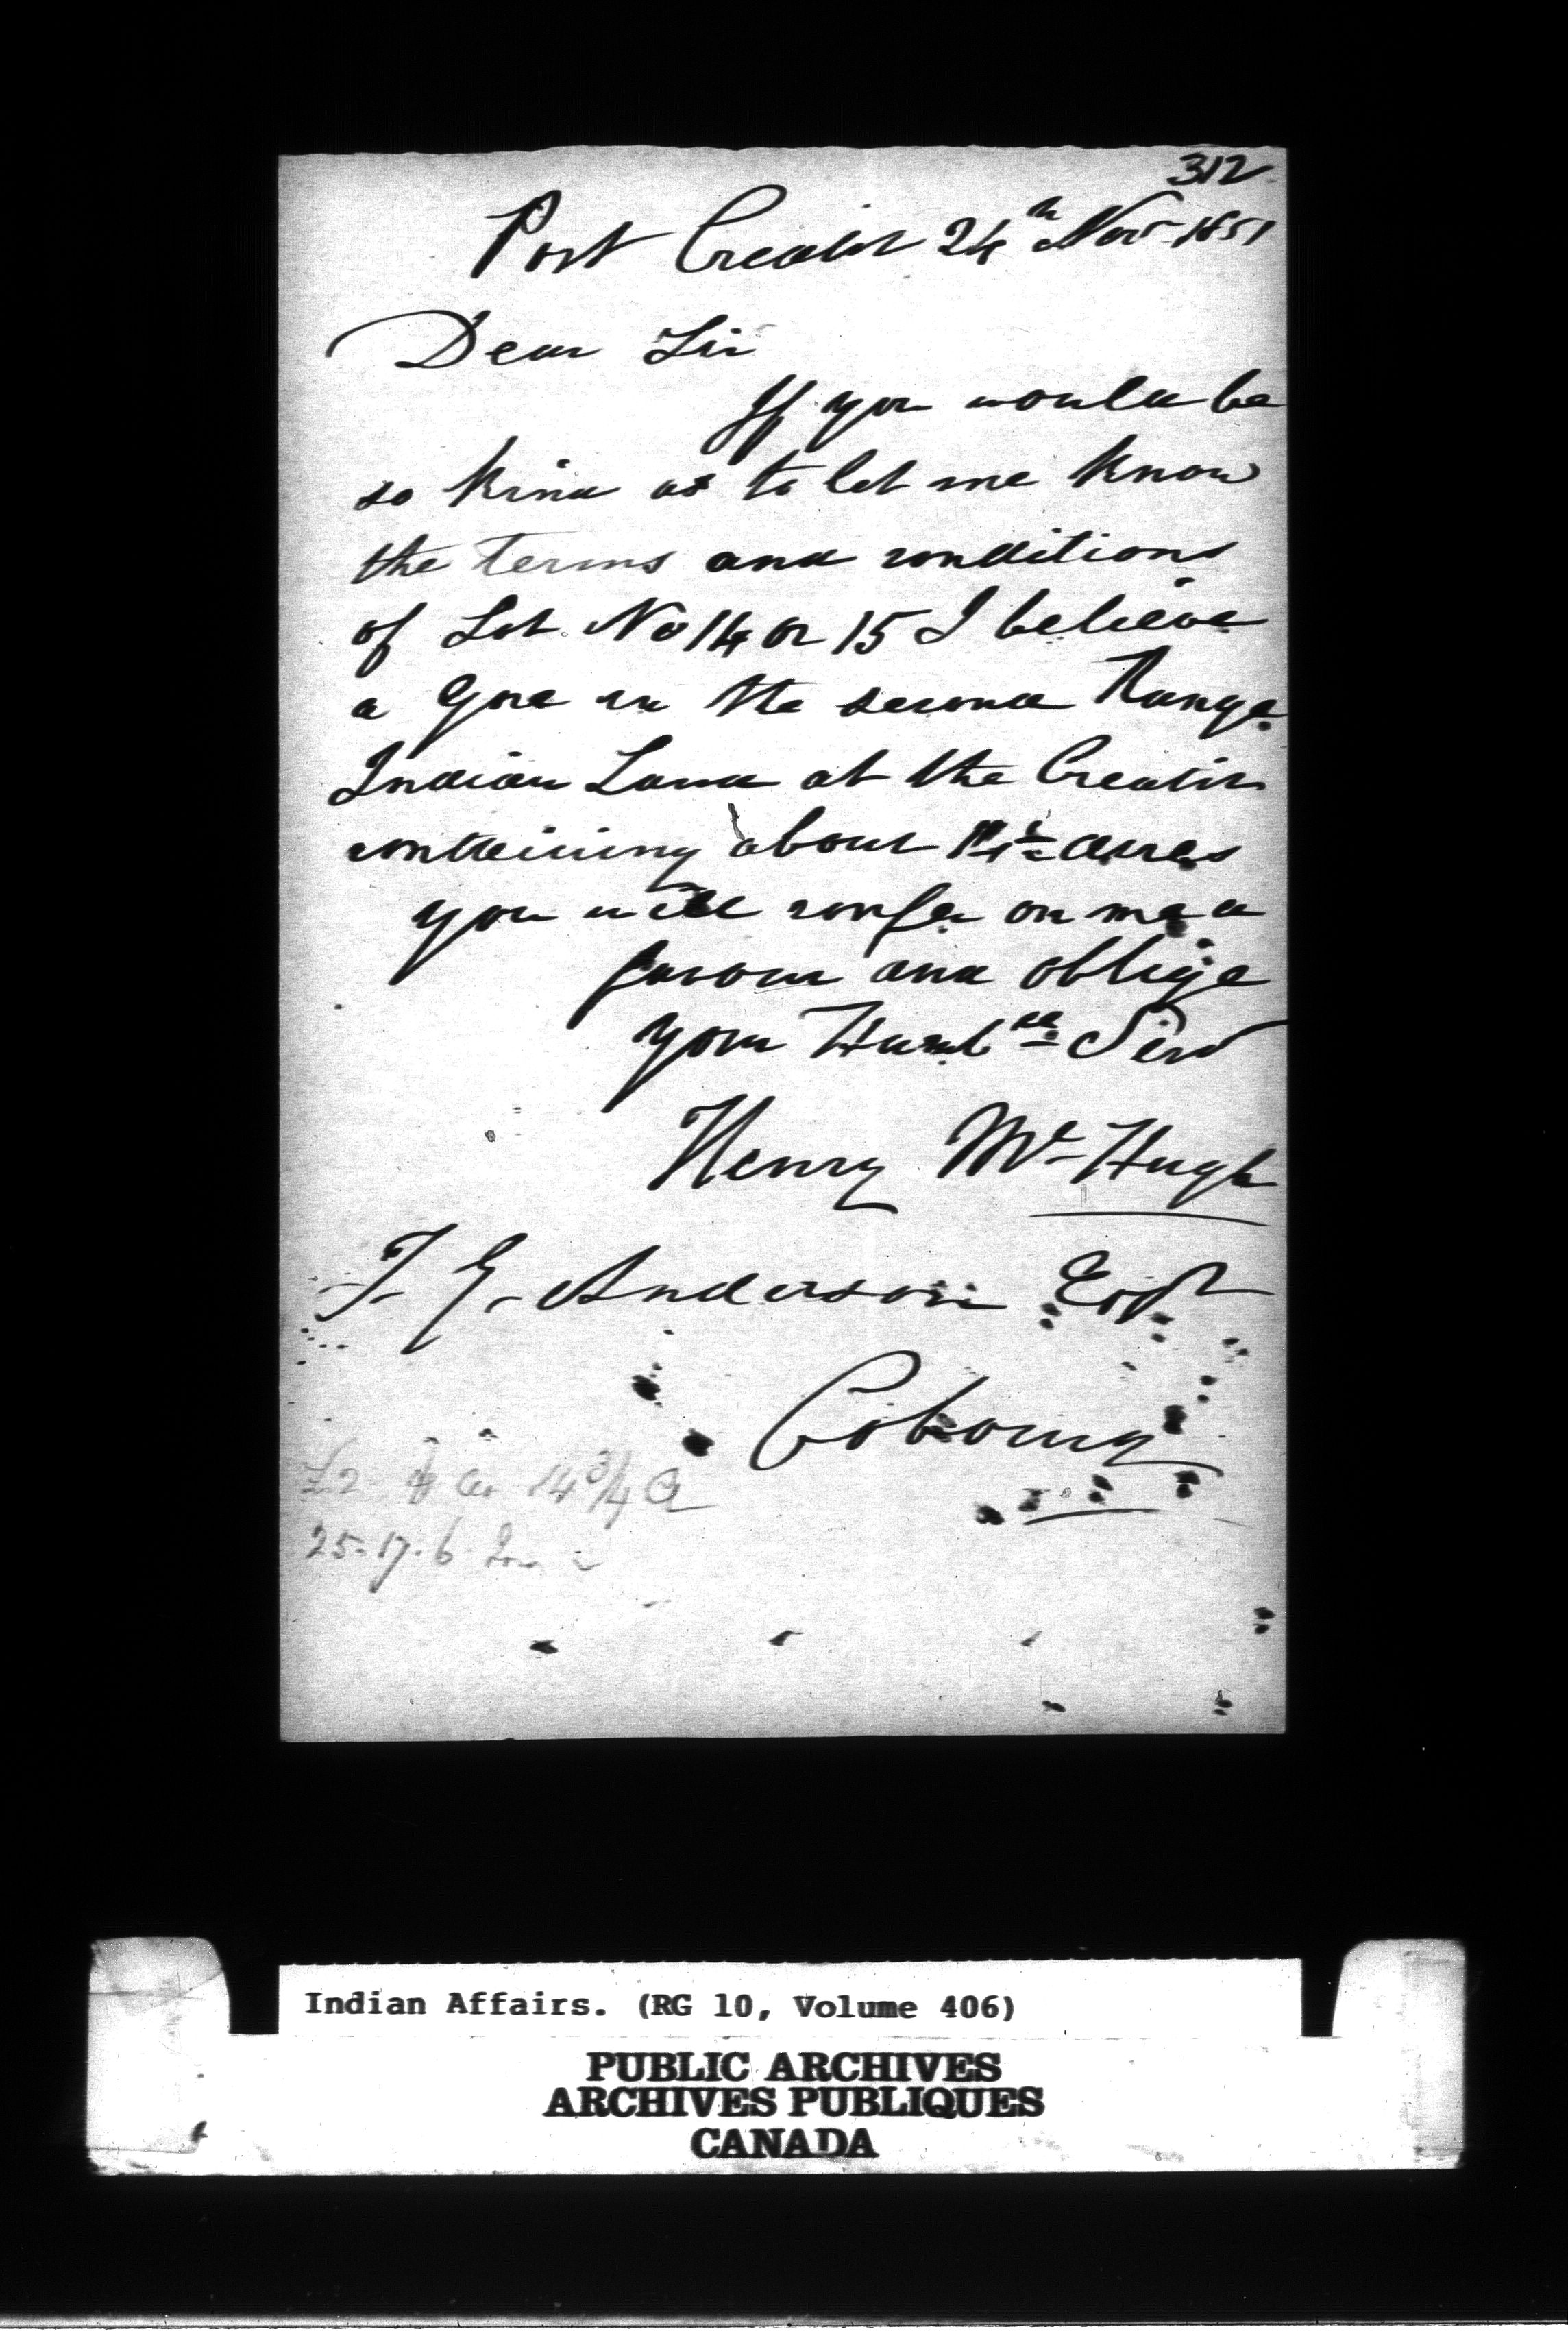 312
Port Credit 24th Nov 1851
Dear Sir
If you would be
so kind as to let me know
the terms and conditions
of Lot No 14 or 15 I believe
a Gore in the second Range
Indian Land at the Credit
containing about acres
you will confer on me a
favour and oblige
your Humble Serv
Henry McHugh
T. G. Anderson Esqr
Cobourg
£2 14 3/4 a
25.17.6
Indian Affairs. (RG 10, Volume 406)
PUBLIC ARCHIVES
ARCHIVES PUBLIQUES
CANADA